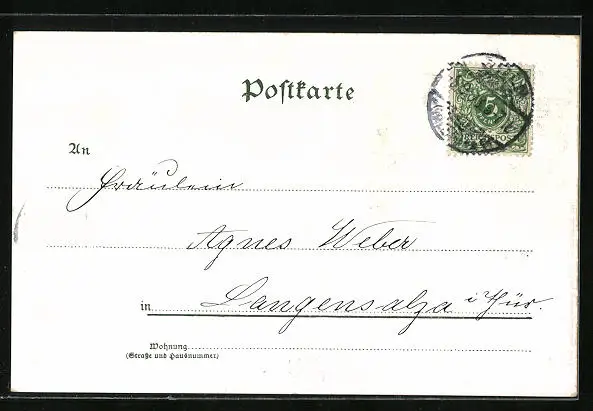 Postkarte
5
REICHSPOST
An
Fräulein
Agnes Weber
in Langensalza i Thür.
Wohnung
(Straße und Hausnummer)